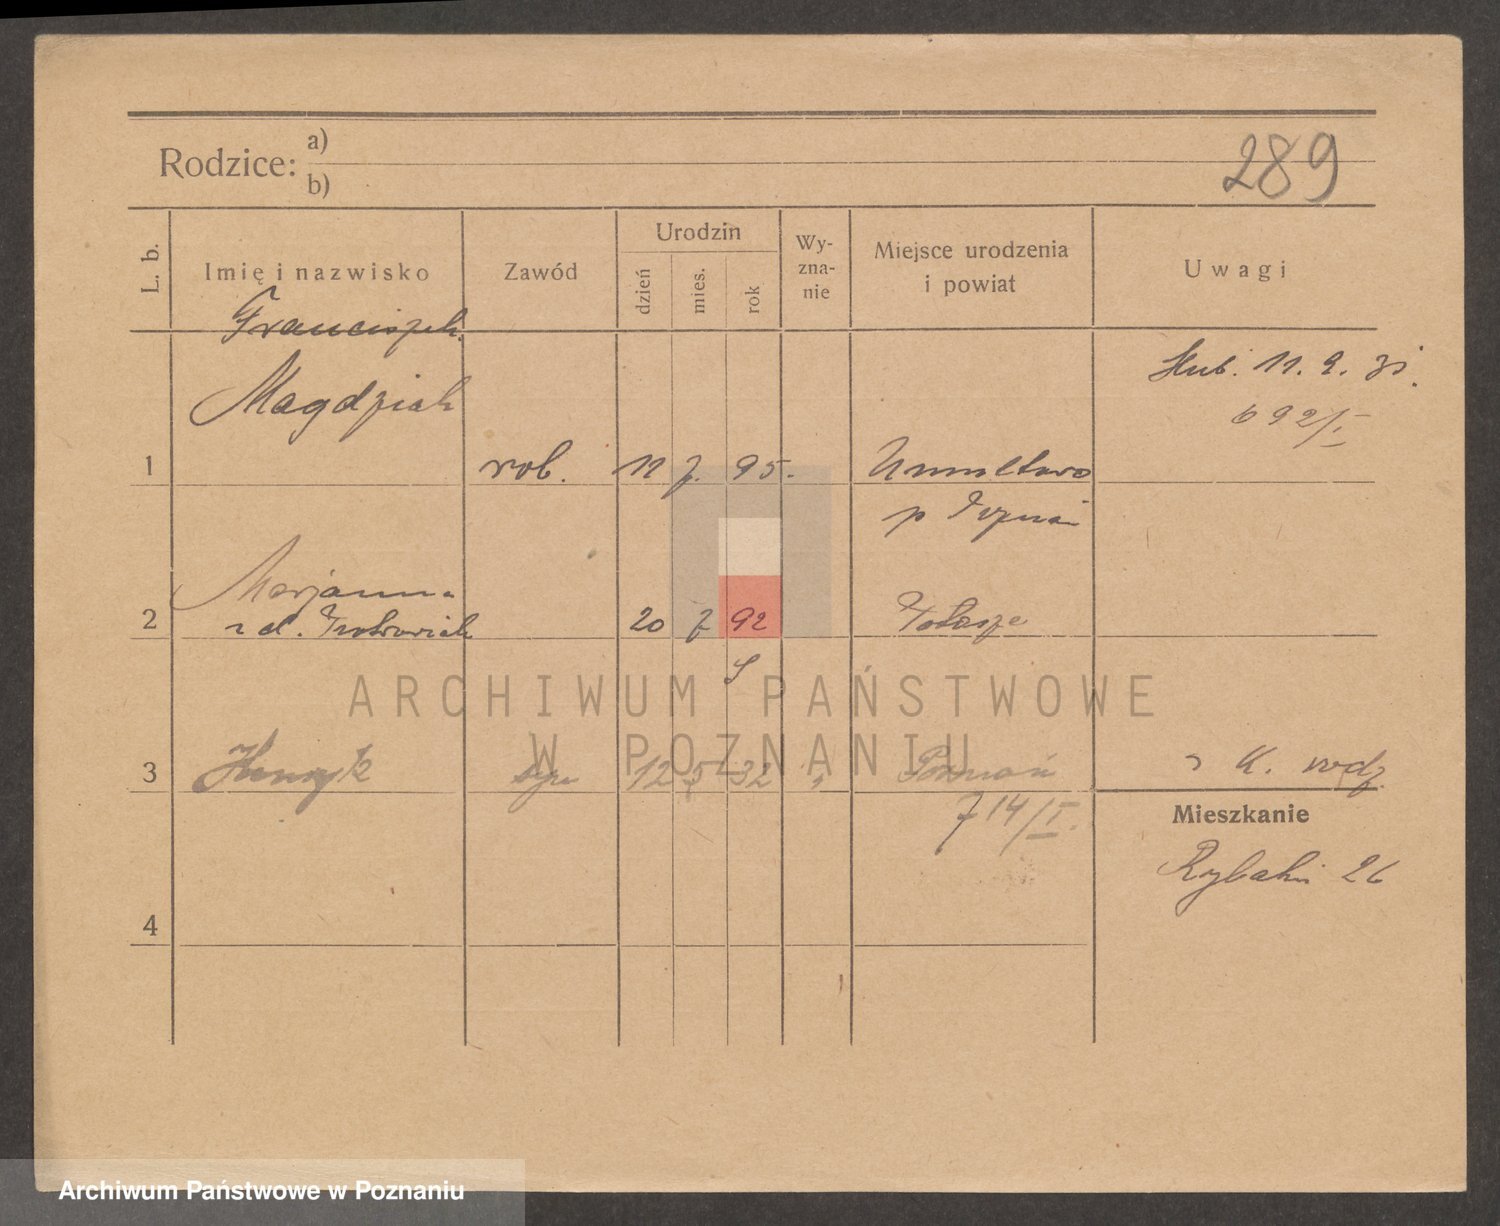 Rodzice: a)
b)
289
L. b.
Imię i nazwisko
Zawód
Urodzin
dzień
mies.
rok
Wy-
zna-
nie
Miejsce urodzenia
i powiat
Uwagi
Franciszek
Magdziak
1
rob.
11 7. 95.
Umultowo
p Poznań
11. 2. 31.
692/I
2
Marjanna
z d.
20 7 92
3
Henryk
syn
12 5 32
"
Poznań
714/I.
z K. rodz.
Mieszkanie
Rybaki 26
4
ARCHIWUM PAŃSTWOWE
W POZNANIU
Archiwum Państwowe w Poznaniu